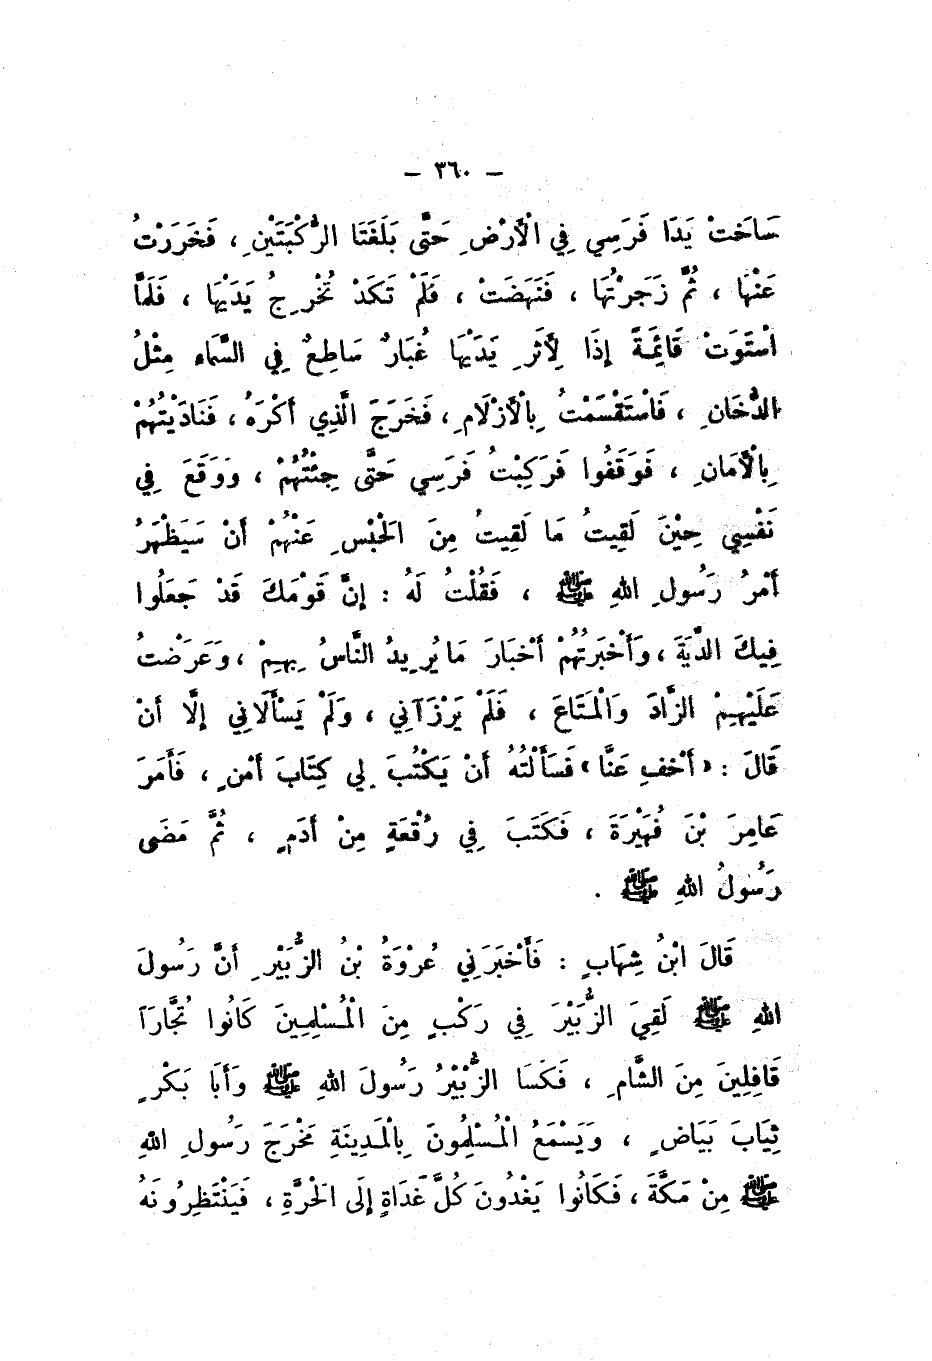 – ٣٦٠ –
سَاخَتْ يَدَا فَرَسِي فِي الْأَرْضِ حَتَّى بَلَغَتَا الرُّكْبَتَيْنِ ، فَخَرَرْتُ
عَنْهَا ، ثُمَّ زَجَرْتُهَا ، فَنَهَضَتْ ، فَلَمْ تَكَدْ تُخْرِجُ يَدَيْهَا ، فَلَمَّا
اسْتَوَتْ قَائِمَةً إِذَا لِأَثَرِ يَدَيْهَا غُبَارٌ سَاطِعٌ فِي السَّمَاءِ مِثْلُ
الدُّخَانِ ، فَاسْتَقْسَمْتُ بِالْأَزْلَامِ ، فَخَرَجَ الَّذِي أَكْرَهُ ، فَنَادَيْتُهُمْ
بِالْأَمَانِ ، فَوَقَفُوا فَرَكِبْتُ فَرَسِي حَتَّى جِئْتُهُمْ ، وَوَقَعَ فِي
نَفْسِي حِيْنَ لَقِيتُ مَا لَقِيتُ مِنَ الْحَبْسِ عَنْهُمْ أَنْ سَيَظْهَرُ
أَمْرُ رَسُولِ اللهِ ﷺ ، فَقُلْتُ لَهُ : إِنَّ قَوْمَكَ قَدْ جَعَلُوا
فِيكَ الدِّيَةَ ، وَأَخْبَرْتُهُمْ أَخْبَارَ مَا يُرِيدُ النَّاسُ بِهِمْ ، وَعَرَضْتُ
عَلَيْهِمْ الزَّادَ وَالْمَتَاعَ ، فَلَمْ يَرْزَآنِي ، وَلَمْ يَسْأَلَانِي إِلَّا أَنْ
قَالَ : «أَخْفِ عَنَّا» فَسَأَلْتُهُ أَنْ يَكْتُبَ لِي كِتَابَ أَمْنٍ ، فَأَمَرَ
عَامِرَ بْنَ فُهَيْرَةَ ، فَكَتَبَ فِي رُقْعَةٍ مِنْ أَدَمٍ ، ثُمَّ مَضَى
رَسُولُ اللهِ ﷺ .
قَالَ ابْنُ شِهَابٍ : فَأَخْبَرَنِي عُرْوَةُ بْنُ الزُّبَيْرِ أَنَّ رَسُولَ
اللهِ ﷺ لَقِيَ الزُّبَيْرَ فِي رَكْبٍ مِنَ الْمُسْلِمِينَ كَانُوا تُجَّارَاً
قَافِلِينَ مِنَ الشَّامِ ، فَكَسَا الزُّبَيْرُ رَسُولَ اللهِ ﷺ وَأَبَا بَكْرٍ
ثِيَابَ بَيَاضٍ ، وَيَسْمَعُ الْمُسْلِمُونَ بِالْمَدِينَةِ مَخْرَجَ رَسُولِ اللهِ
ﷺ مِنْ مَكَّةَ ، فَكَانُوا يَغْدُونَ كُلَّ غَدَاةٍ إِلَى الْحَرَّةِ ، فَيَنْتَظِرُونَهُ